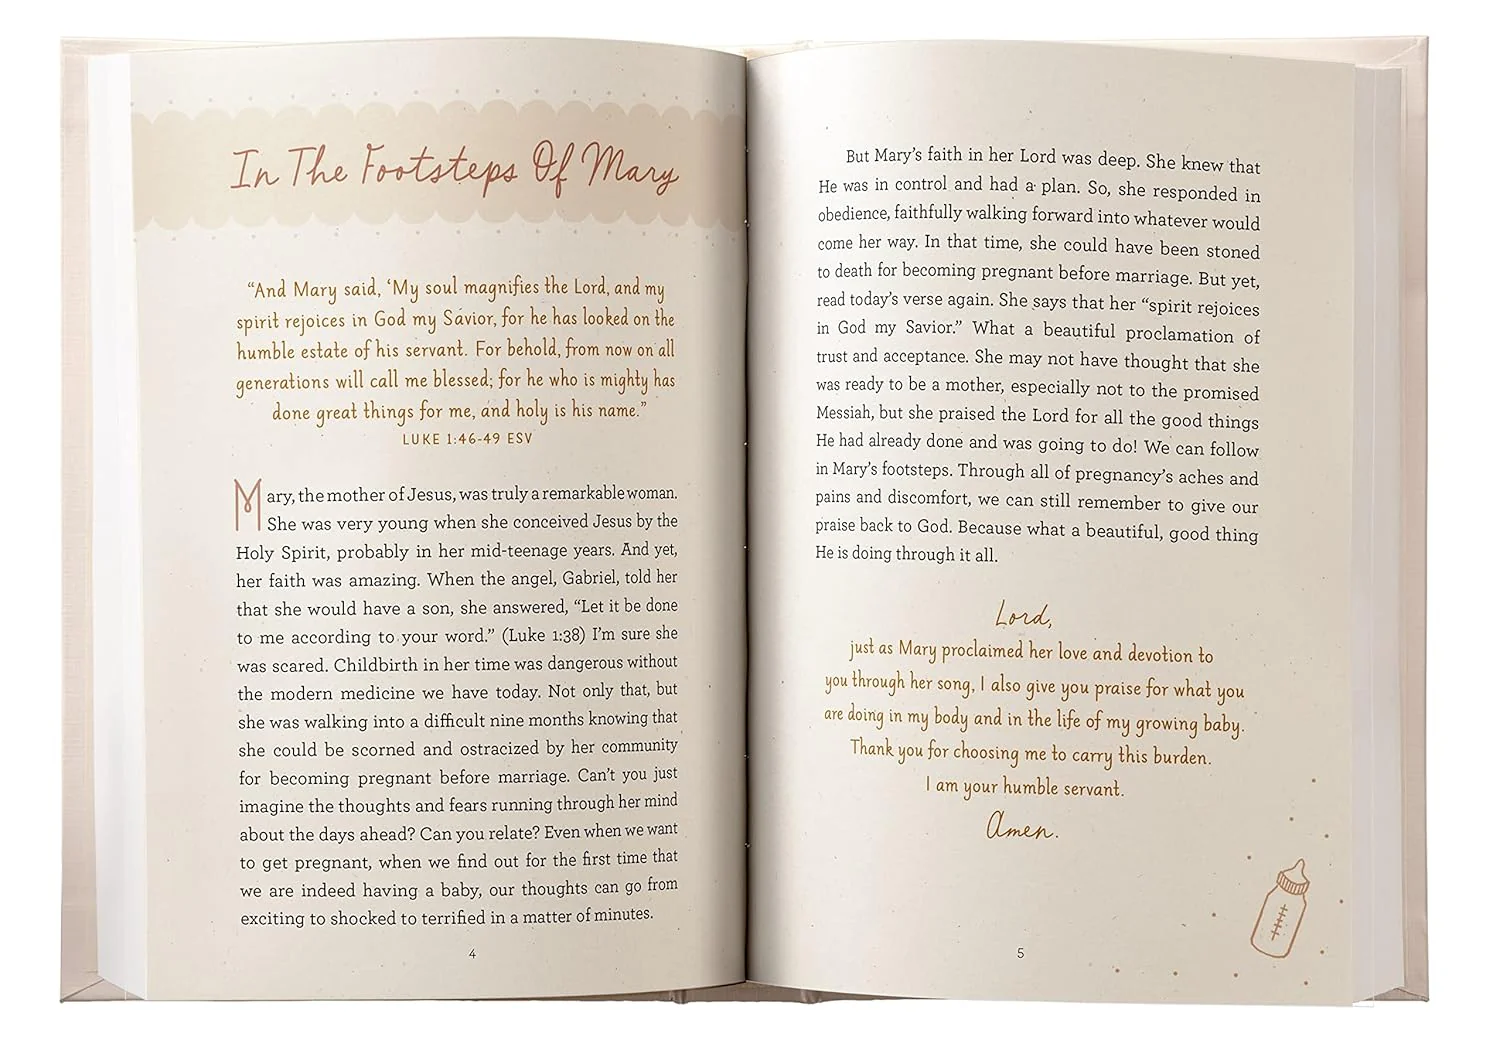 In The Footsteps Of Mary
“And Mary said, ‘My soul magnifies the Lord, and my
spirit rejoices in God my Savior, for he has looked on the
humble estate of his servant. For behold, from now on all
generations will call me blessed; for he who is mighty has
done great things for me, and holy is his name.”
LUKE 1:46-49 ESV
Mary, the mother of Jesus, was truly a remarkable woman.
She was very young when she conceived Jesus by the
Holy Spirit, probably in her mid-teenage years. And yet,
her faith was amazing. When the angel, Gabriel, told her
that she would have a son, she answered, “Let it be done
to me according to your word.” (Luke 1:38) I’m sure she
was scared. Childbirth in her time was dangerous without
the modern medicine we have today. Not only that, but
she was walking into a difficult nine months knowing that
she could be scorned and ostracized by her community
for becoming pregnant before marriage. Can’t you just
imagine the thoughts and fears running through her mind
about the days ahead? Can you relate? Even when we want
to get pregnant, when we find out for the first time that
we are indeed having a baby, our thoughts can go from
exciting to shocked to terrified in a matter of minutes.
4
But Mary’s faith in her Lord was deep. She knew that
He was in control and had a plan. So, she responded in
obedience, faithfully walking forward into whatever would
come her way. In that time, she could have been stoned
to death for becoming pregnant before marriage. But yet,
read today’s verse again. She says that her “spirit rejoices
in God my Savior.” What a beautiful proclamation of
trust and acceptance. She may not have thought that she
was ready to be a mother, especially not to the promised
Messiah, but she praised the Lord for all the good things
He had already done and was going to do! We can follow
in Mary’s footsteps. Through all of pregnancy’s aches and
pains and discomfort, we can still remember to give our
praise back to God. Because what a beautiful, good thing
He is doing through it all.
Lord,
just as Mary proclaimed her love and devotion to
you through her song, I also give you praise for what you
are doing in my body and in the life of my growing baby.
Thank you for choosing me to carry this burden.
I am your humble servant.
Amen.
5